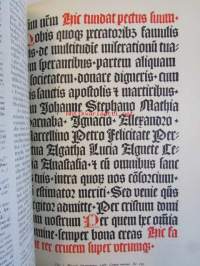 Hic tundat pectus suum.
obis quoque peccatoribus famulis
is de multitudine miserationū tua
m sperantibus partem aliquam
societatem donare digneris: cum
is sanctis apostolis et martiribus
m Johanne Stephano Mathia
arnaba Ignatio Alexandro
arcellino Petro Felicitate Per
tua Agatha Lucia Agnete Ce
lia Anastasia et cū omnibus sanc
intra quorum nos consortiū
estimator meriti Sed venie qs
rgitor admitte. Per cristum dom
nostrum Per quem hec omnia
mine semper bona creas Hic fa
at ter crucem super utrumq;